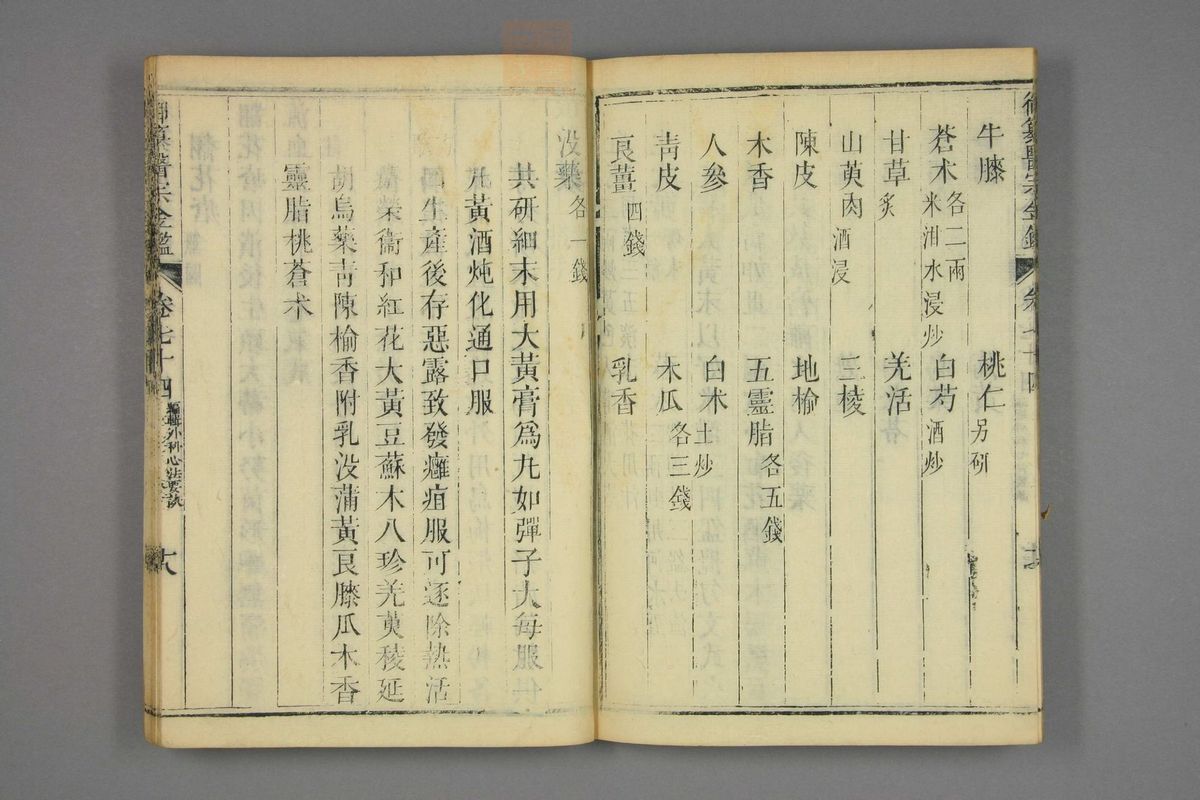 御纂醫宗金鑑 卷七十四
牛膝 桃仁另研
蒼朮各二兩米泔水浸炒 白芍酒炒
甘草炙 羌活
山萸肉酒浸 三棱
陳皮 地榆
木香 五靈脂各五錢
人參 白朮土炒
靑皮 木瓜各三錢
良薑四錢 乳香
没藥各一錢
共研細末用大黃膏爲丸如彈子大每服
一丸黃酒炖化通口服
囬生產後存惡露致發癰疽服可逐除熱活
榮衞和紅花大黃豆蘇木八珍羌萸稜延
胡烏藥靑陳榆香附乳没蒲黃良膝瓜木香
靈脂桃蒼朮
御纂醫宗金鑑 卷七十四 編輯外科心法要訣 十八